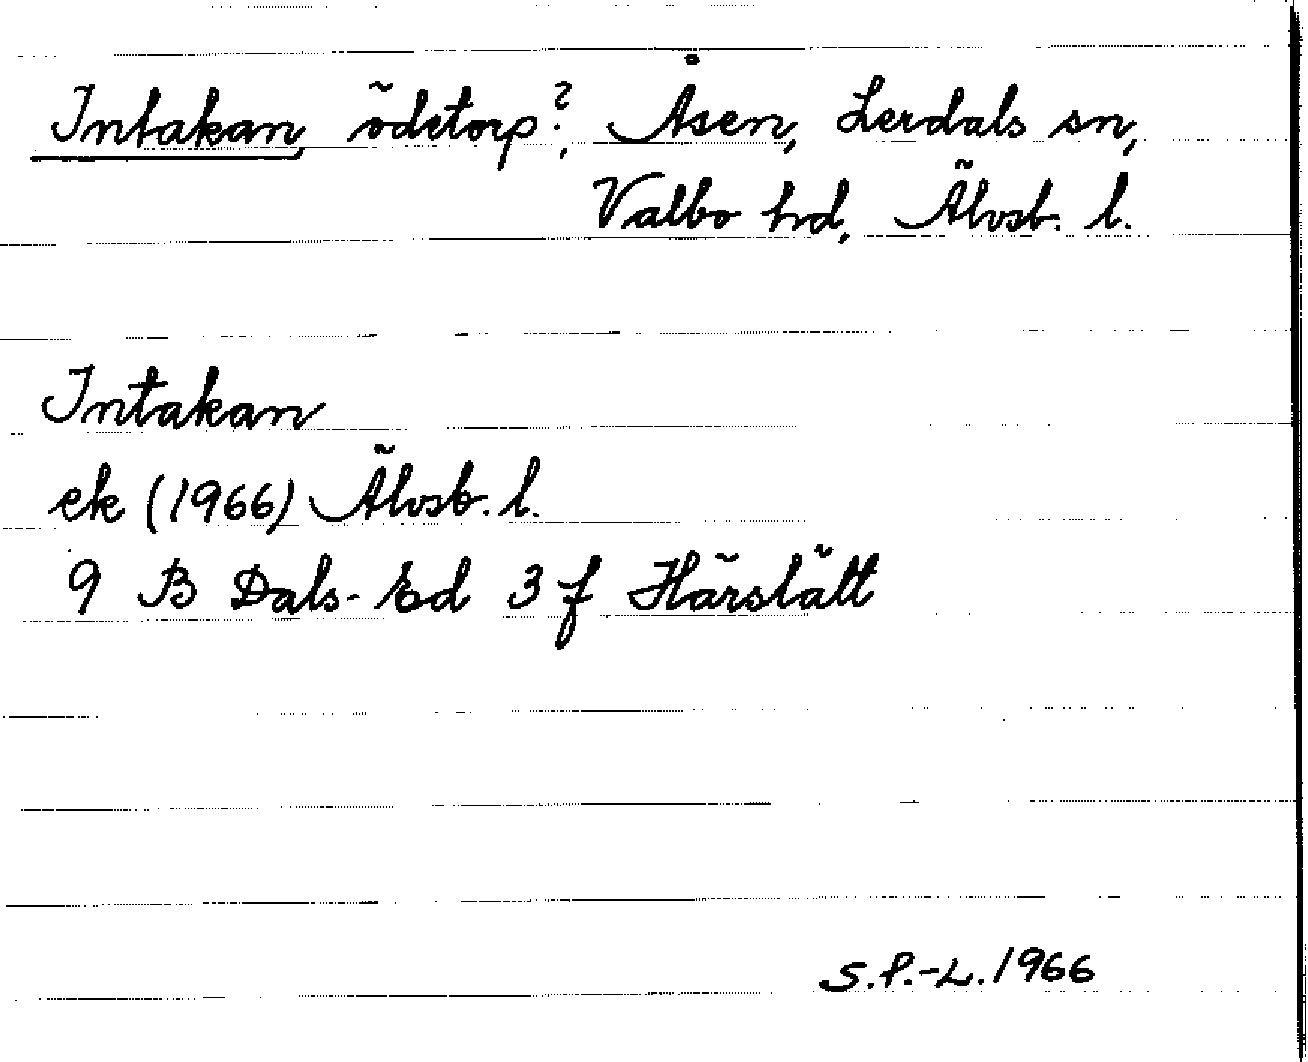 Intakan, ödetorp?, Åsen, Lerdals sn,
Valbo hd, Älvsb. l.
Intakan
ek (1966) Älvsb. l.
9 B Dals-Ed 3 f Härslätt
S.P.-L. 1966